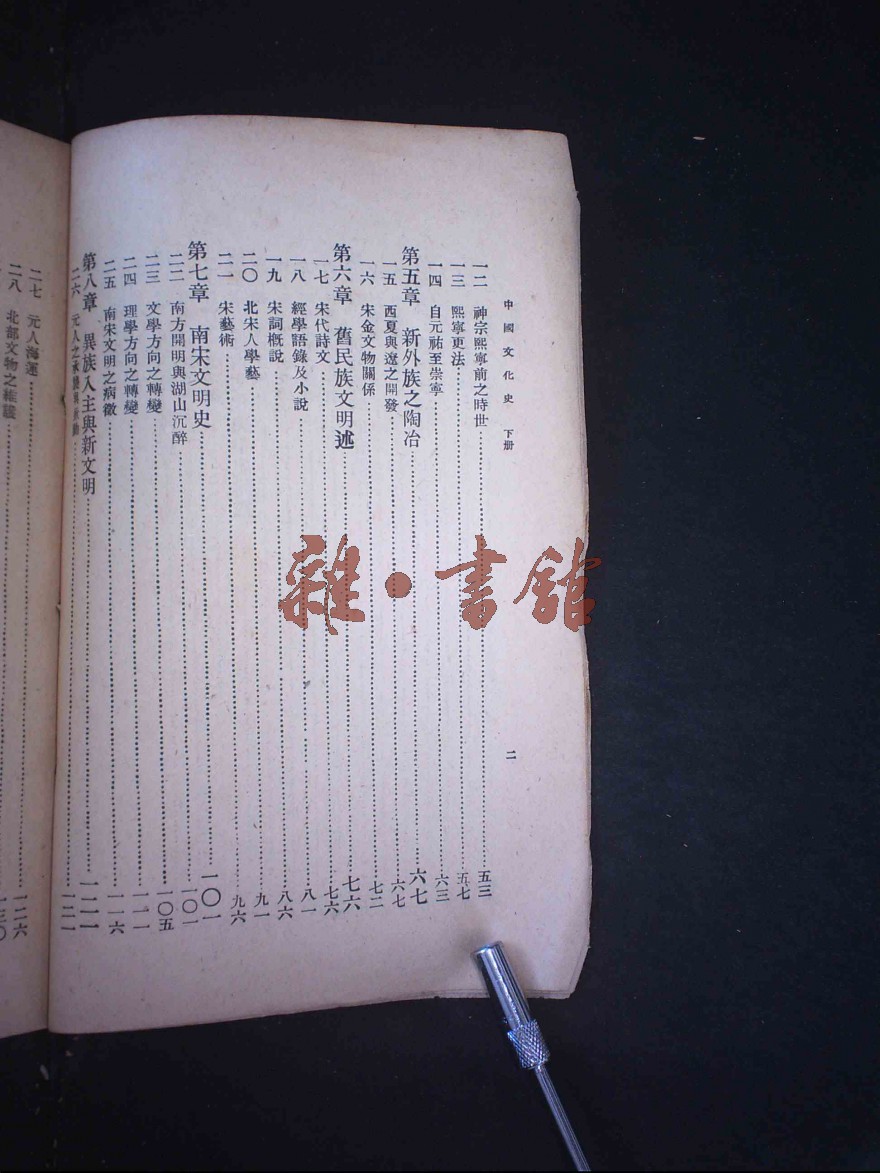 中國文化史 下册
二
一二 神宗熙寧前之時世……五三
一三 熙寧更法……五七
一四 自元祐至崇寧……六三
第五章 新外族之陶冶……六七
一五 西夏與遼之開發……六七
一六 宋金文物關係……七二
第六章 舊民族文明述……七六
一七 宋代詩文……七六
一八 經學語錄及小說……八一
一九 宋詞概說……八六
二〇 北宋人學藝……九一
二一 宋藝術……九六
第七章 南宋文明史……一〇一
二二 南方開明與湖山沉醉……一〇一
二三 文學方向之轉變……一〇五
二四 理學方向之轉變……一一一
二五 南宋文明之病徵……一一六
第八章 異族入主與新文明……一二一
二六 元人之……一二一
二七 元人海運……一二六
二八 北部文物之……一三〇
雜·書館